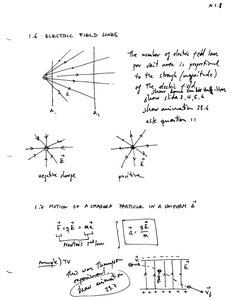 N 1.8
1.6 ELECTRIC FIELD LINES
The number of electric field lines
per unit area is proportional
to the strength (magnitude)
of the electric field.
show slides 3, 4, 5, 6
show animation 23.6
ask question 11
A₁
A₂
E⃗
E⃗
negative charge
positive
1.7 MOTION OF A CHARGED PARTICLE IN A UNIFORM E⃗
F⃗ = qE⃗ = ma⃗
a⃗ = qE⃗/m
Newton's 2nd law
TV
this was Thompson
experiment
show animation
23.7
E⃗